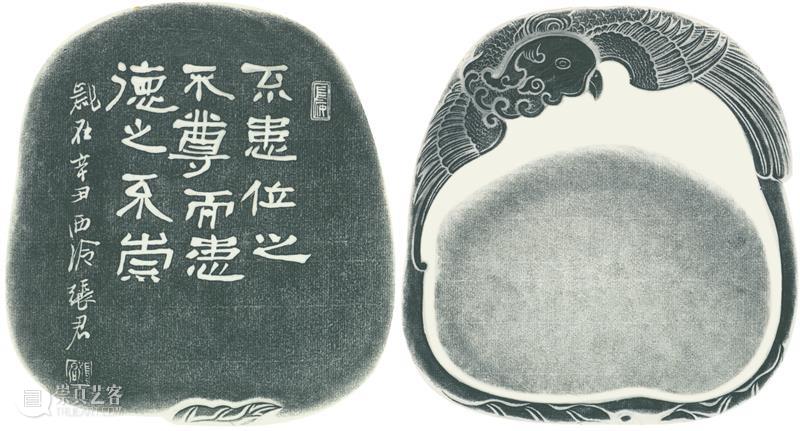 不患位之
不尊而患
德之不崇
歲在辛丑西泠張君
崇真艺客
TRUEART.COM